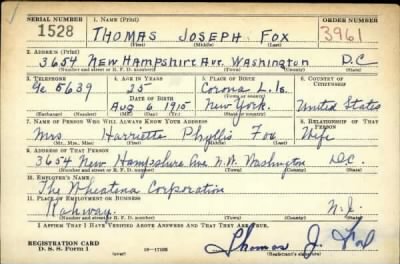 SERIAL NUMBER 1. NAME (Print) ORDER NUMBER
1528 THOMAS JOSEPH FOX 3961
(First) (Middle) (Last)
2. ADDRESS (Print)
3654 NEW HAMPSHIRE Ave. WASHINGTON D.C
(Number and street or R. F. D. number) (Town) (County) (State)
3. TELEPHONE 4. AGE IN YEARS 5. PLACE OF BIRTH 6. COUNTRY OF CITIZENSHIP
Ge. 5639 25 Corona L. Is.
DATE OF BIRTH (Town or county)
Aug 6 1915 New York. United States
(Exchange) (Number) (Mo.) (Day) (Yr.) (State or country)
7. NAME OF PERSON WHO WILL ALWAYS KNOW YOUR ADDRESS 8. RELATIONSHIP OF THAT PERSON
Mrs Harrietta Phyllis Fox Wife
(Mr., Mrs., Miss) (First) (Middle) (Last)
9. ADDRESS OF THAT PERSON
3654 New Hampshire Ave N.W. Washington D.C.
(Number and street or R. F. D. number) (Town) (County) (State)
10. EMPLOYER'S NAME
The Wheatena Corporation
11. PLACE OF EMPLOYMENT OR BUSINESS
Rahway. N.J.
(Number and street or R. F. D. number) (Town) (County) (State)
I AFFIRM THAT I HAVE VERIFIED ABOVE ANSWERS AND THAT THEY ARE TRUE.
REGISTRATION CARD
D. S. S. Form 1 (over) Thomas J. Fox
(Registrant's signature)